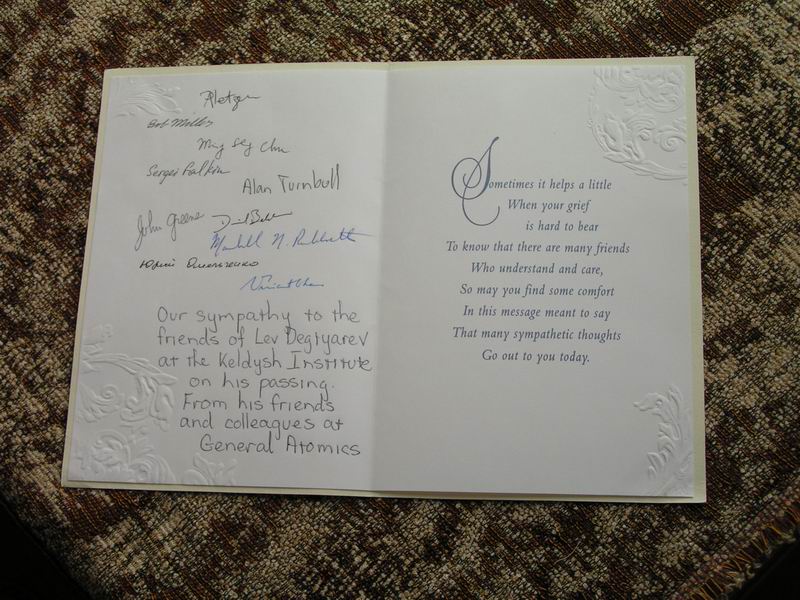 Bob Miller
Ming Sheng Chu
Sergei Galkin
Alan Turnbull
John Greene
Marshall N. Rosenbluth
Юрий Омельченко
Vincent Chan
Our sympathy to the
friends of Lev Degtyarev
at the Keldysh Institute
on his passing.
From his friends
and colleagues at
General Atomics
Sometimes it helps a little
When your grief
is hard to bear
To know that there are many friends
Who understand and care,
So may you find some comfort
In this message meant to say
That many sympathetic thoughts
Go out to you today.